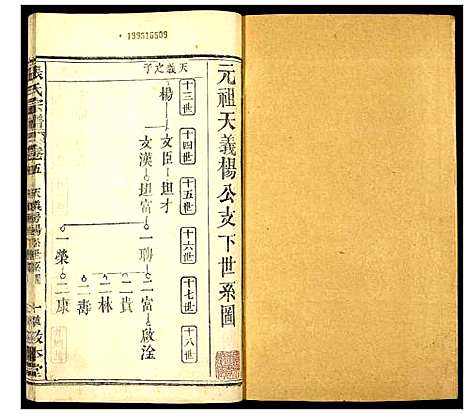 199515509
元祖天義楊公支下世系圖
十三世
十四世
十五世
十六世
十七世
十八世
天義之子
楊
文臣
坦才
文漢
坦富
一聘
二富
啟淦
二貴
二林
二壽
一榮
二康
張氏宗譜
卷五
天義房楊公世系圖
敦本堂